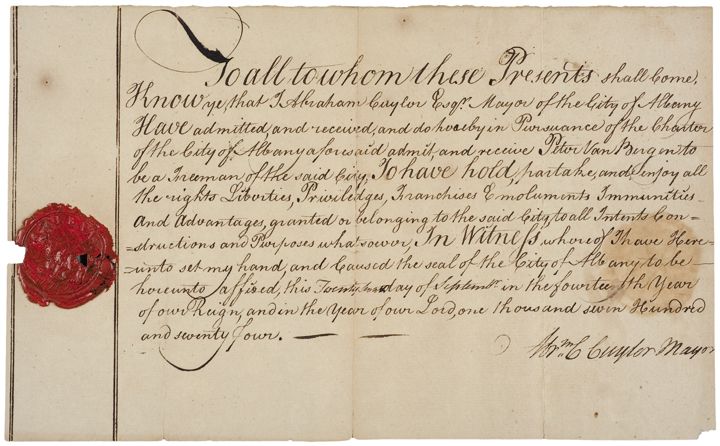 To all to whom these Presents shall Come,
Know ye, that I Abraham Cuyler Esqr. Mayor of the City of Albany
Have admitted, and received, and do hereby in Pursuance of the Charter
of the City of Albany aforesaid admit, and receive Peter Van Bergen to
be a Freeman of the said City, To have hold, partake, and enjoy all
the rights Liberties, Priviledges, Franchises Emoluments Immunities
And Advantages, granted or belonging to the said City, to all Intents Con-
-structions and Purposes whatsoever, In Witness, whereof I have Here-
-unto set my hand, and Caused the seal of the City of Albany to be
hereunto affixed, this day of Septembr. in the fourteenth Year
of our Reign, and in the Year of our Lord, one thousand seven Hundred
and seventy four.
Abrm. C Cuyler Mayor